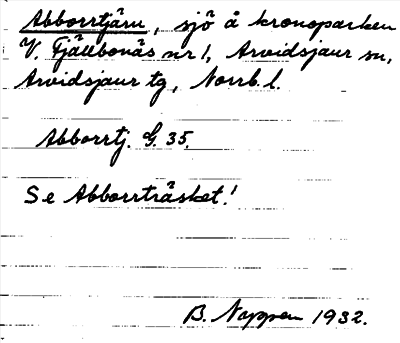 Abborrtjärn, sjö å kronoparken
V. Fjällbonäs nr 1, Arvidsjaur sn,
Arvidsjaur tg, Norrb. l.
Abborrtj. G. 35.
Se Abborrträsket!
B. 1932.